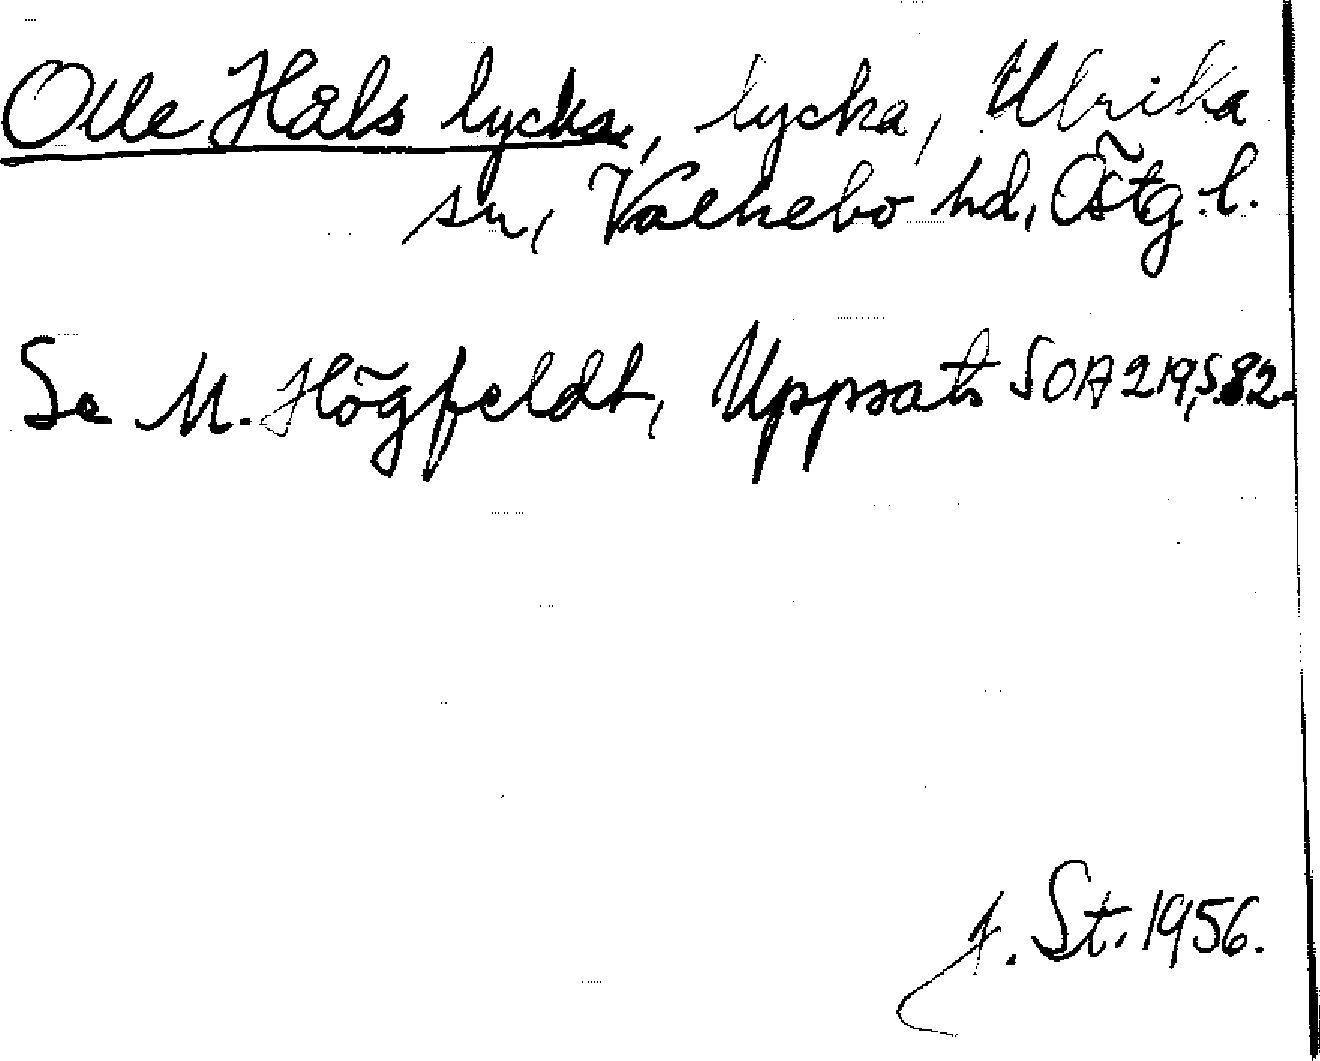 Olle Håls lycka, lycka, Ulrika
sn, Valkebo hd, Östg.l.
Se M. Högfeldt, Uppsats SOA 219, s. 82.
J. St. 1956.